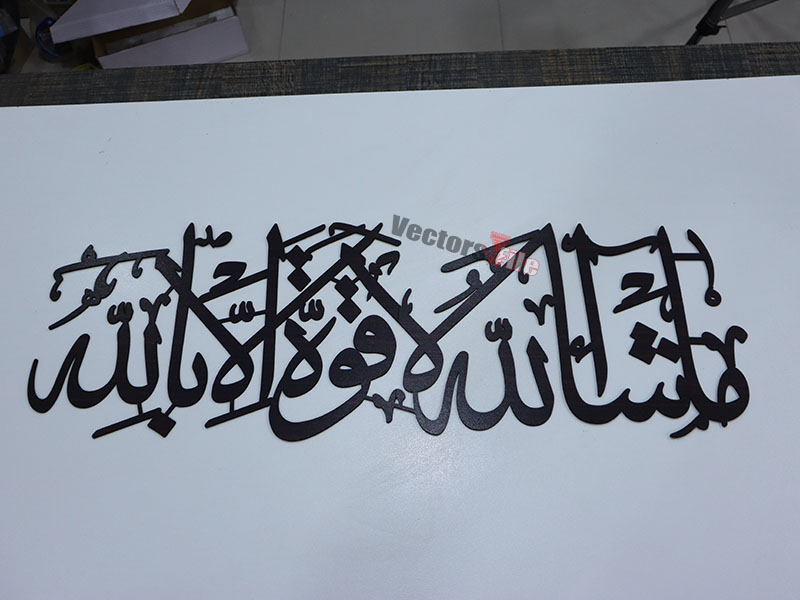 ما شاء الله لا قوة إلا بالله
VectorsFile